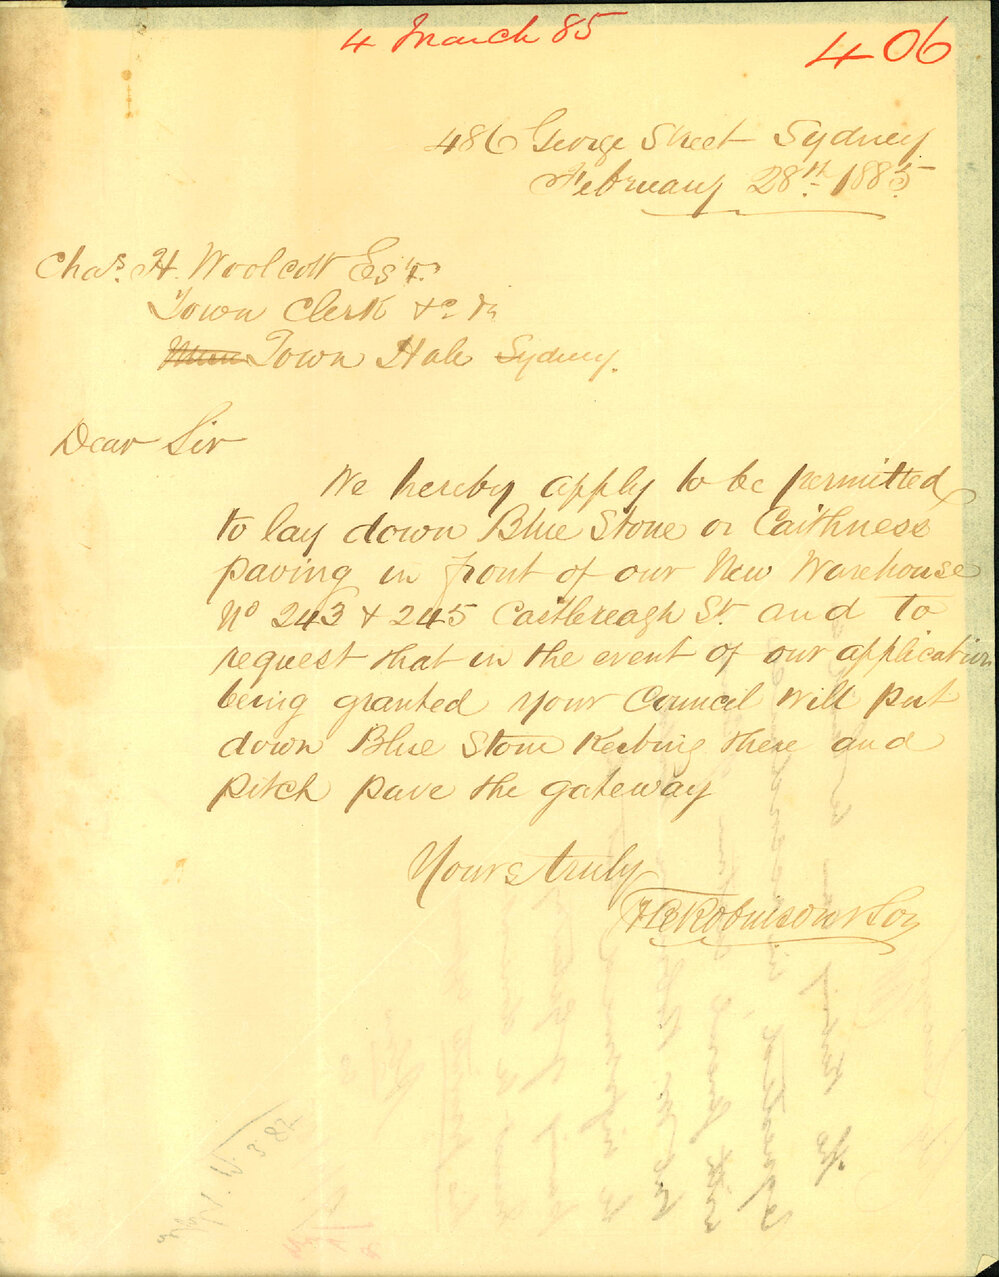 4 March 85
406
486 George Street Sydney
February 28th 1885
Chas. H. Woolcott Esqr.
Town Clerk &c &c
Town Hall Sydney.
Dear Sir
We hereby apply to be permitted
to lay down Blue Stone or Caithness
paving in front of our New Warehouse
No 243 & 245 Castlereagh St. and to
request that in the event of our application
being granted your Council will put
down Blue Stone Kerbing there and
pitch pave the gateway
Yours truly
Robinson & Son